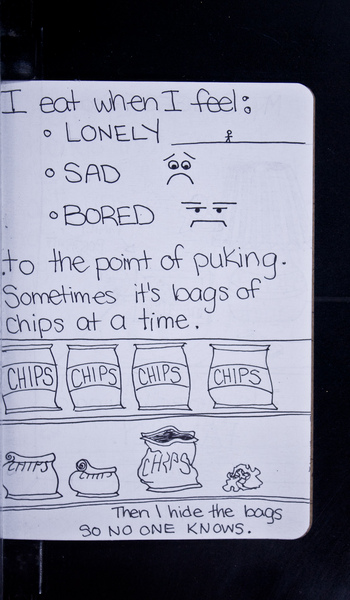 I eat when I feel:
• LONELY
• SAD
• BORED
to the point of puking.
Sometimes it's bags of
chips at a time.
CHIPS CHIPS CHIPS CHIPS
CHIPS CHIPS CHIPS
Then I hide the bags
SO NO ONE KNOWS.